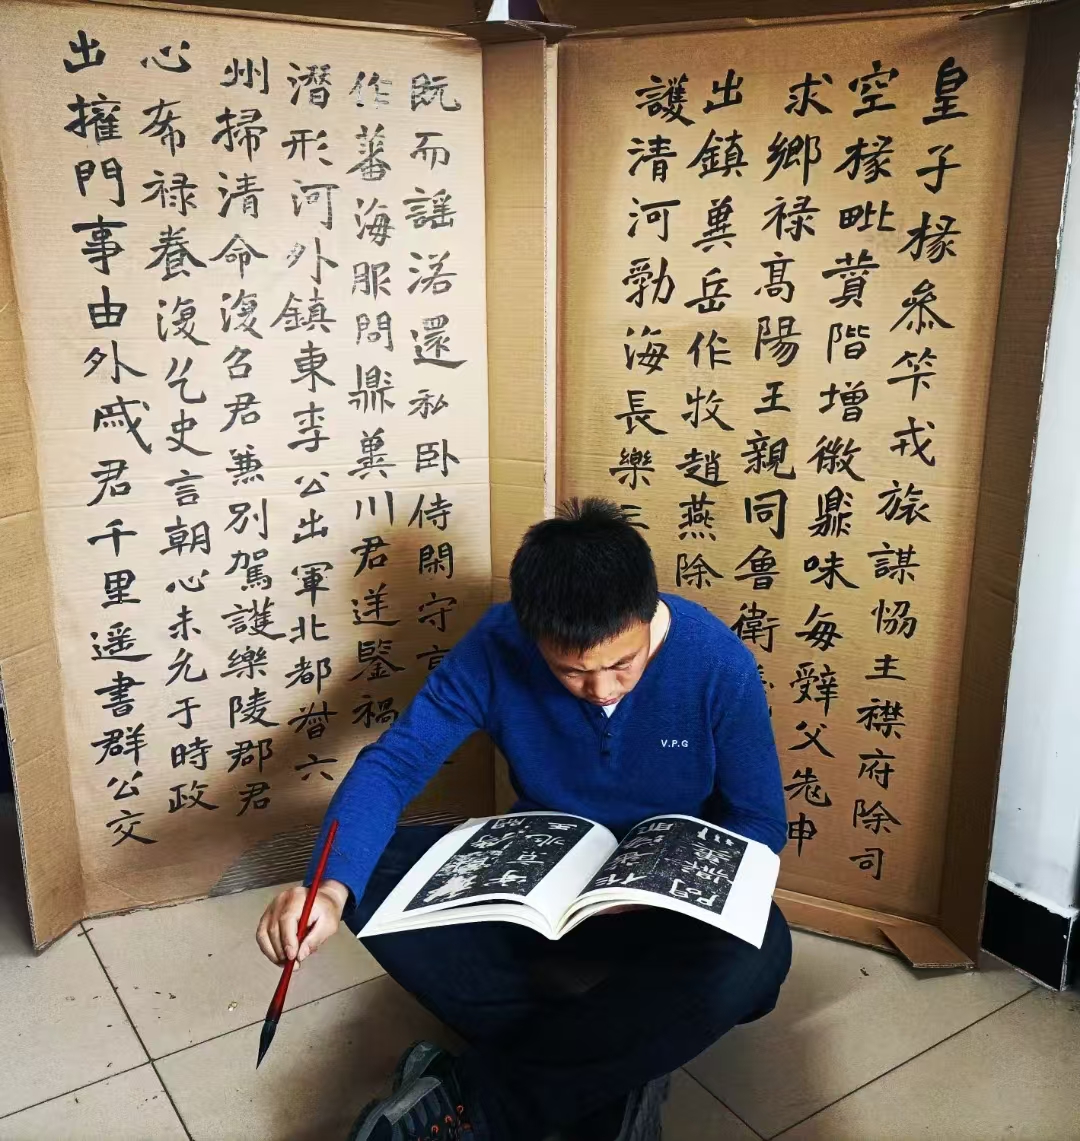 皇子椽叅竿戎旅謀恊主襟府除司
空椽毗賛階增徽鼎味每辤父申
求鄉禄高陽王親同魯衛
出鎮冀岳作牧趙燕除
護清河勃海長樂三
既而謡還私卧侍閑守
作蕃海服問鼎冀川君逆鑒禍
潛形河外鎮東李公出軍北都督六
州掃清命復召君兼别駕護樂陵郡君
心希禄養復乞史言朝心未允于時政
出擁門事由外戚君千里遥書群公交
V.P.G